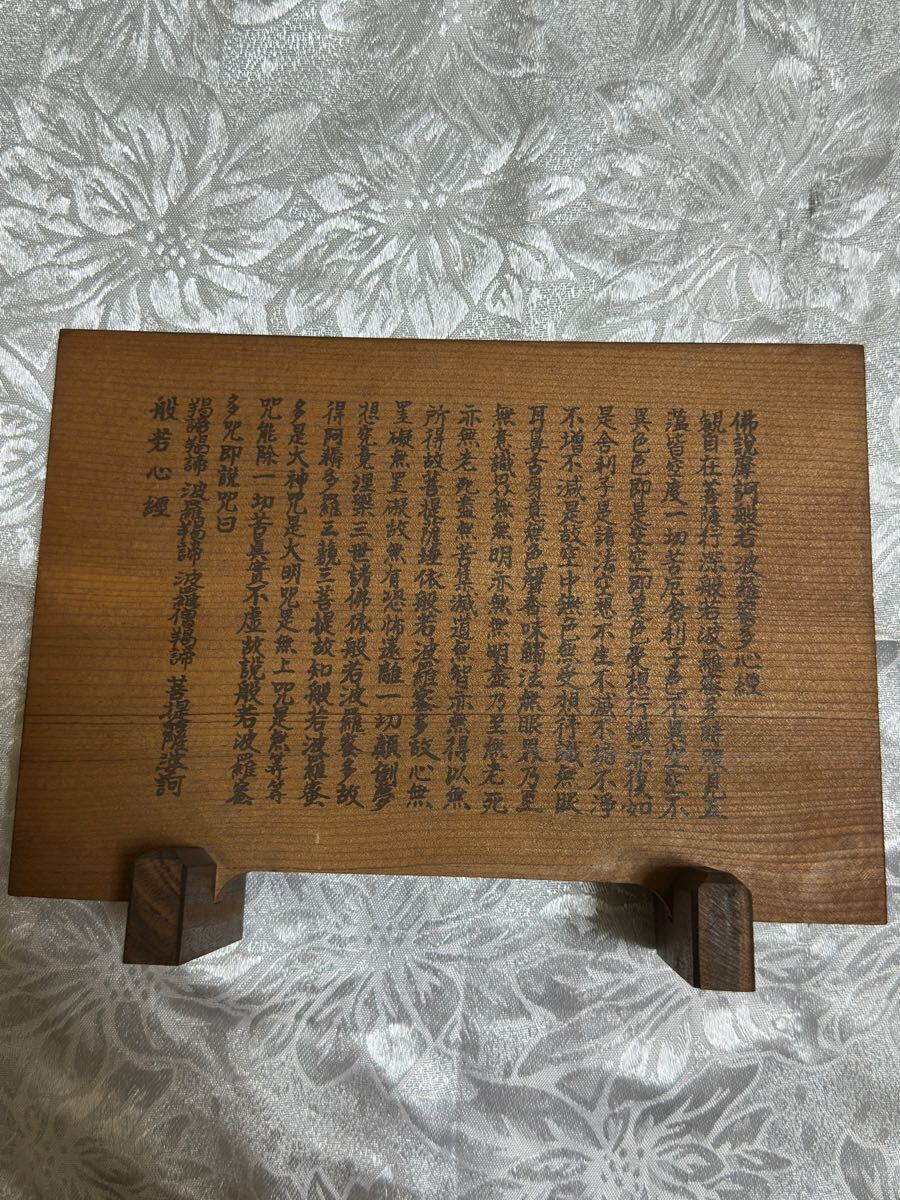 佛說摩訶般若波羅蜜多心經
観自在菩薩行深般若波羅蜜多時照見五
蘊皆空度一切苦厄舎利子色不異空空不
異色色即是空空即是色受想行識亦復如
是舎利子是諸法空想不生不滅不垢不浄
不増不減是故空中無色無受想行識無眼
耳鼻舌身意無色聲香味觸法無眼界乃至
無意識界無無明亦無無明盡乃至無老死
亦無老死盡無苦集滅道無智亦無得以無
所得故菩提薩埵依般若波羅蜜多故心無
罣礙無罣礙故無有恐怖遠離一切顛倒夢
想究竟涅槃三世諸佛依般若波羅蜜多故
得阿耨多羅三藐三菩提故知般若波羅蜜
多是大神咒是大明咒是無上咒是無等等
咒能除一切苦真實不虚故説般若波羅蜜
多咒即説咒曰
羯諦羯諦 波羅羯諦 波羅僧羯諦 菩提薩婆訶
般若心經